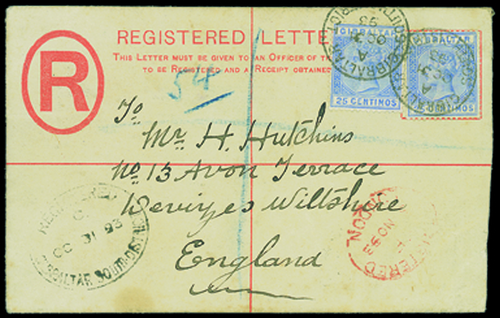 REGISTERED LETTE
THIS LETTER MUST BE GIVEN TO AN OFFICER OF T
TO BE REGISTERED AND A RECEIPT OBTAINED
R
54
GIBRALTAR
25 CENTIMOS
GIBRALTAR
CENTIMOS
To
Mr H. Hutchins
No 13 Avon Terrace
Devizes Wiltshire
England
REGISTERED
OC 31 93
GIBRALTAR SOUTH DISTRICT
GIBRALTAR SOUTH DISTRICT
A
OC 31
93
REGISTERED
LONDON
NO 93